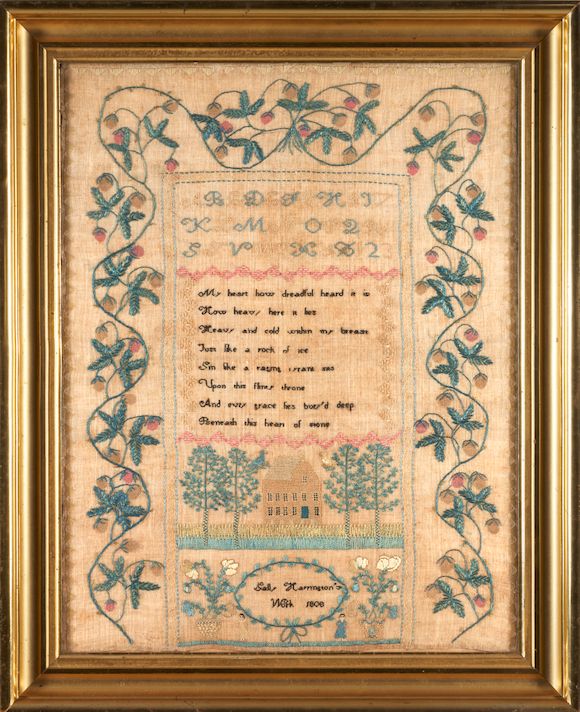 B D I H I
K M O Q
S V X & Z
My heart how dreadful heard it is
How heavy here it lies
Heavy and cold within my breast
Just like a rock of ice
Sin like a raging tyrant sits
Upon this flinty throne
And every grace lies bury'd deep
Beneath this heart of stone
Sally Harrington's
Work 1808